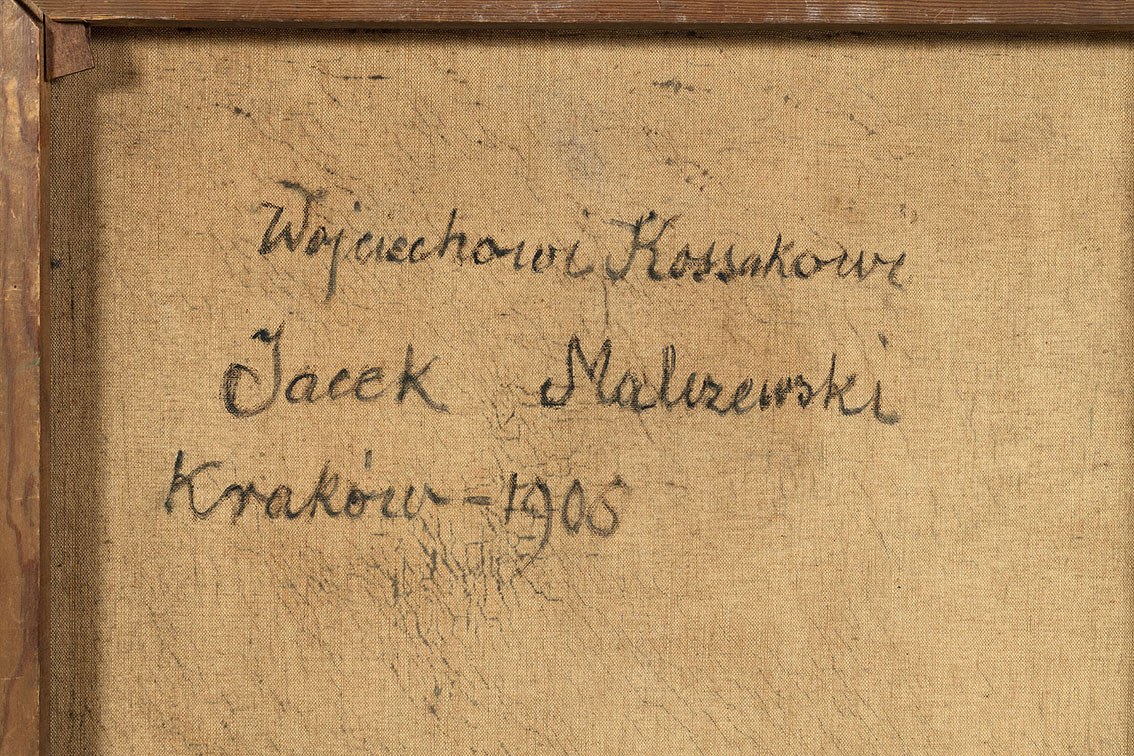 Wojciechowi Kossakowi
Jacek Malczewski
Kraków - 1906